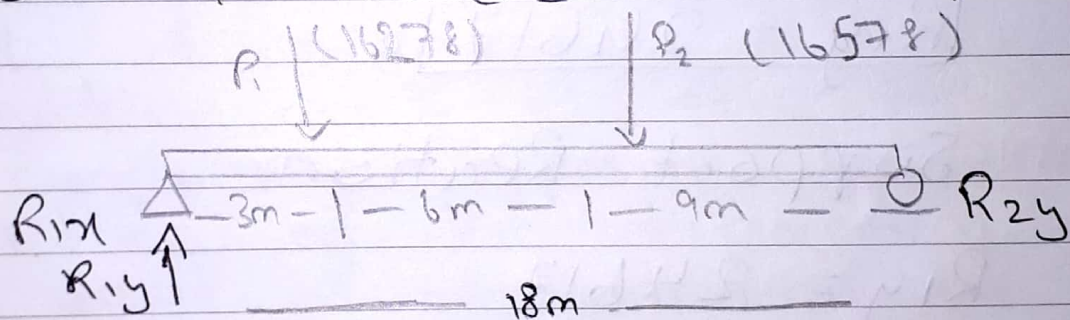 P1 (16278) P2 (16578)
R1x 3m 6m 9m R2y
R1y
18m